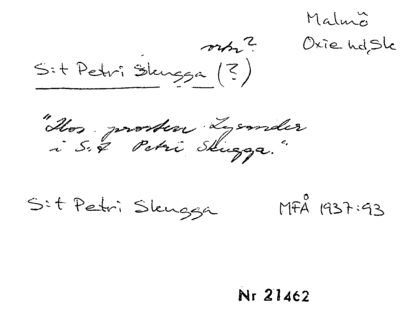 Malmö
Oxie hd, Sk
S:t Petri Skugga (?)
"Hos prosten Lysander
i S:t Petri Skugga."
S:t Petri Skugga MFÅ 1937:93
Nr 21462